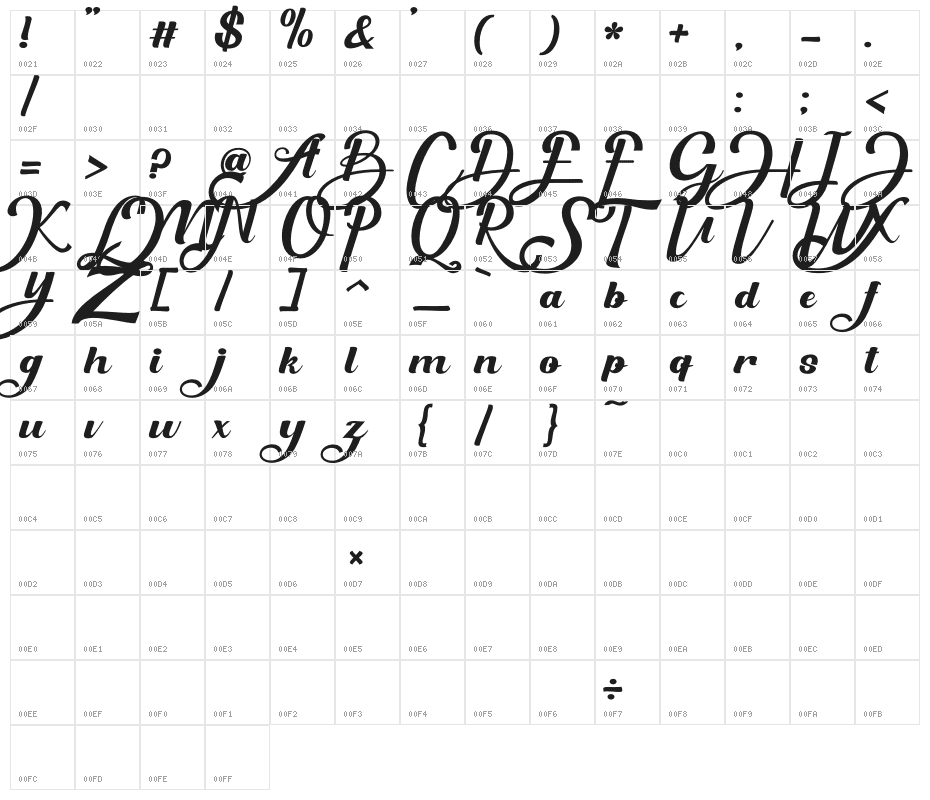 ! " # $ % & ' ( ) * + , - .
0021 0022 0023 0024 0025 0026 0027 0028 0029 002A 002B 002C 002D 002E
/ : ; <
002F 0030 0031 0032 0033 0034 0035 0036 0037 0038 0039 003A 003B 003C
= > ? @ A B C D E F G H I J
003D 003E 003F 0040 0041 0042 0043 0044 0045 0046 0047 0048 0049 004A
K L M N O P Q R S T U V W X
004B 004C 004D 004E 004F 0050 0051 0052 0053 0054 0055 0056 0057 0058
Y Z [ \ ] ^ _ ` a b c d e f
0059 005A 005B 005C 005D 005E 005F 0060 0061 0062 0063 0064 0065 0066
g h i j k l m n o p q r s t
0067 0068 0069 006A 006B 006C 006D 006E 006F 0070 0071 0072 0073 0074
u v w x y z { | } ~
0075 0076 0077 0078 0079 007A 007B 007C 007D 007E 00C0 00C1 00C2 00C3
00C4 00C5 00C6 00C7 00C8 00C9 00CA 00CB 00CC 00CD 00CE 00CF 00D0 00D1
×
00D2 00D3 00D4 00D5 00D6 00D7 00D8 00D9 00DA 00DB 00DC 00DD 00DE 00DF
00E0 00E1 00E2 00E3 00E4 00E5 00E6 00E7 00E8 00E9 00EA 00EB 00EC 00ED
÷
00EE 00EF 00F0 00F1 00F2 00F3 00F4 00F5 00F6 00F7 00F8 00F9 00FA 00FB
00FC 00FD 00FE 00FF